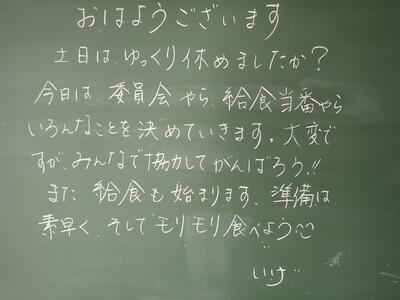 おはようございます
土日は、ゆっくり休めましたか？
今日は、委員会やら、給食当番やら
いろんなことを決めていきます。大変で
すが、みんなで協力してがんばろう!!
また、給食も始まります、準備は
素早く、そしてモリモリ食べよう
いけ